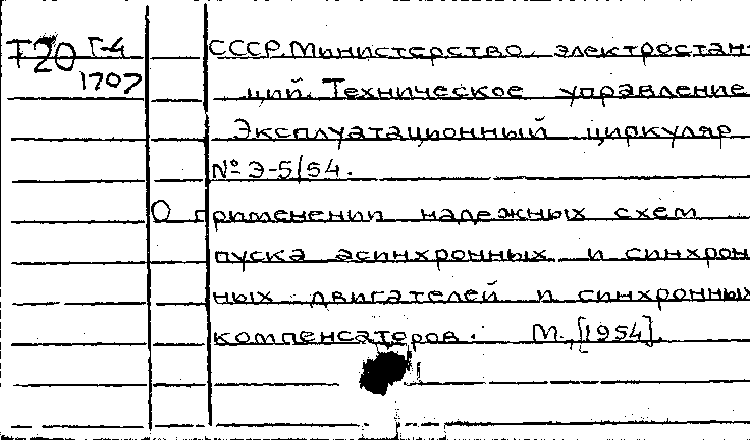 Т20 Г-4
1707
СССР. Министерство электростан-
ций. Техническое управление
Эксплуатационный циркуляр
№ Э-5/54.
О применении надежных схем
пуска асинхронных и синхрон
ных двигателей и синхронных
компенсатеров. М., [1954].